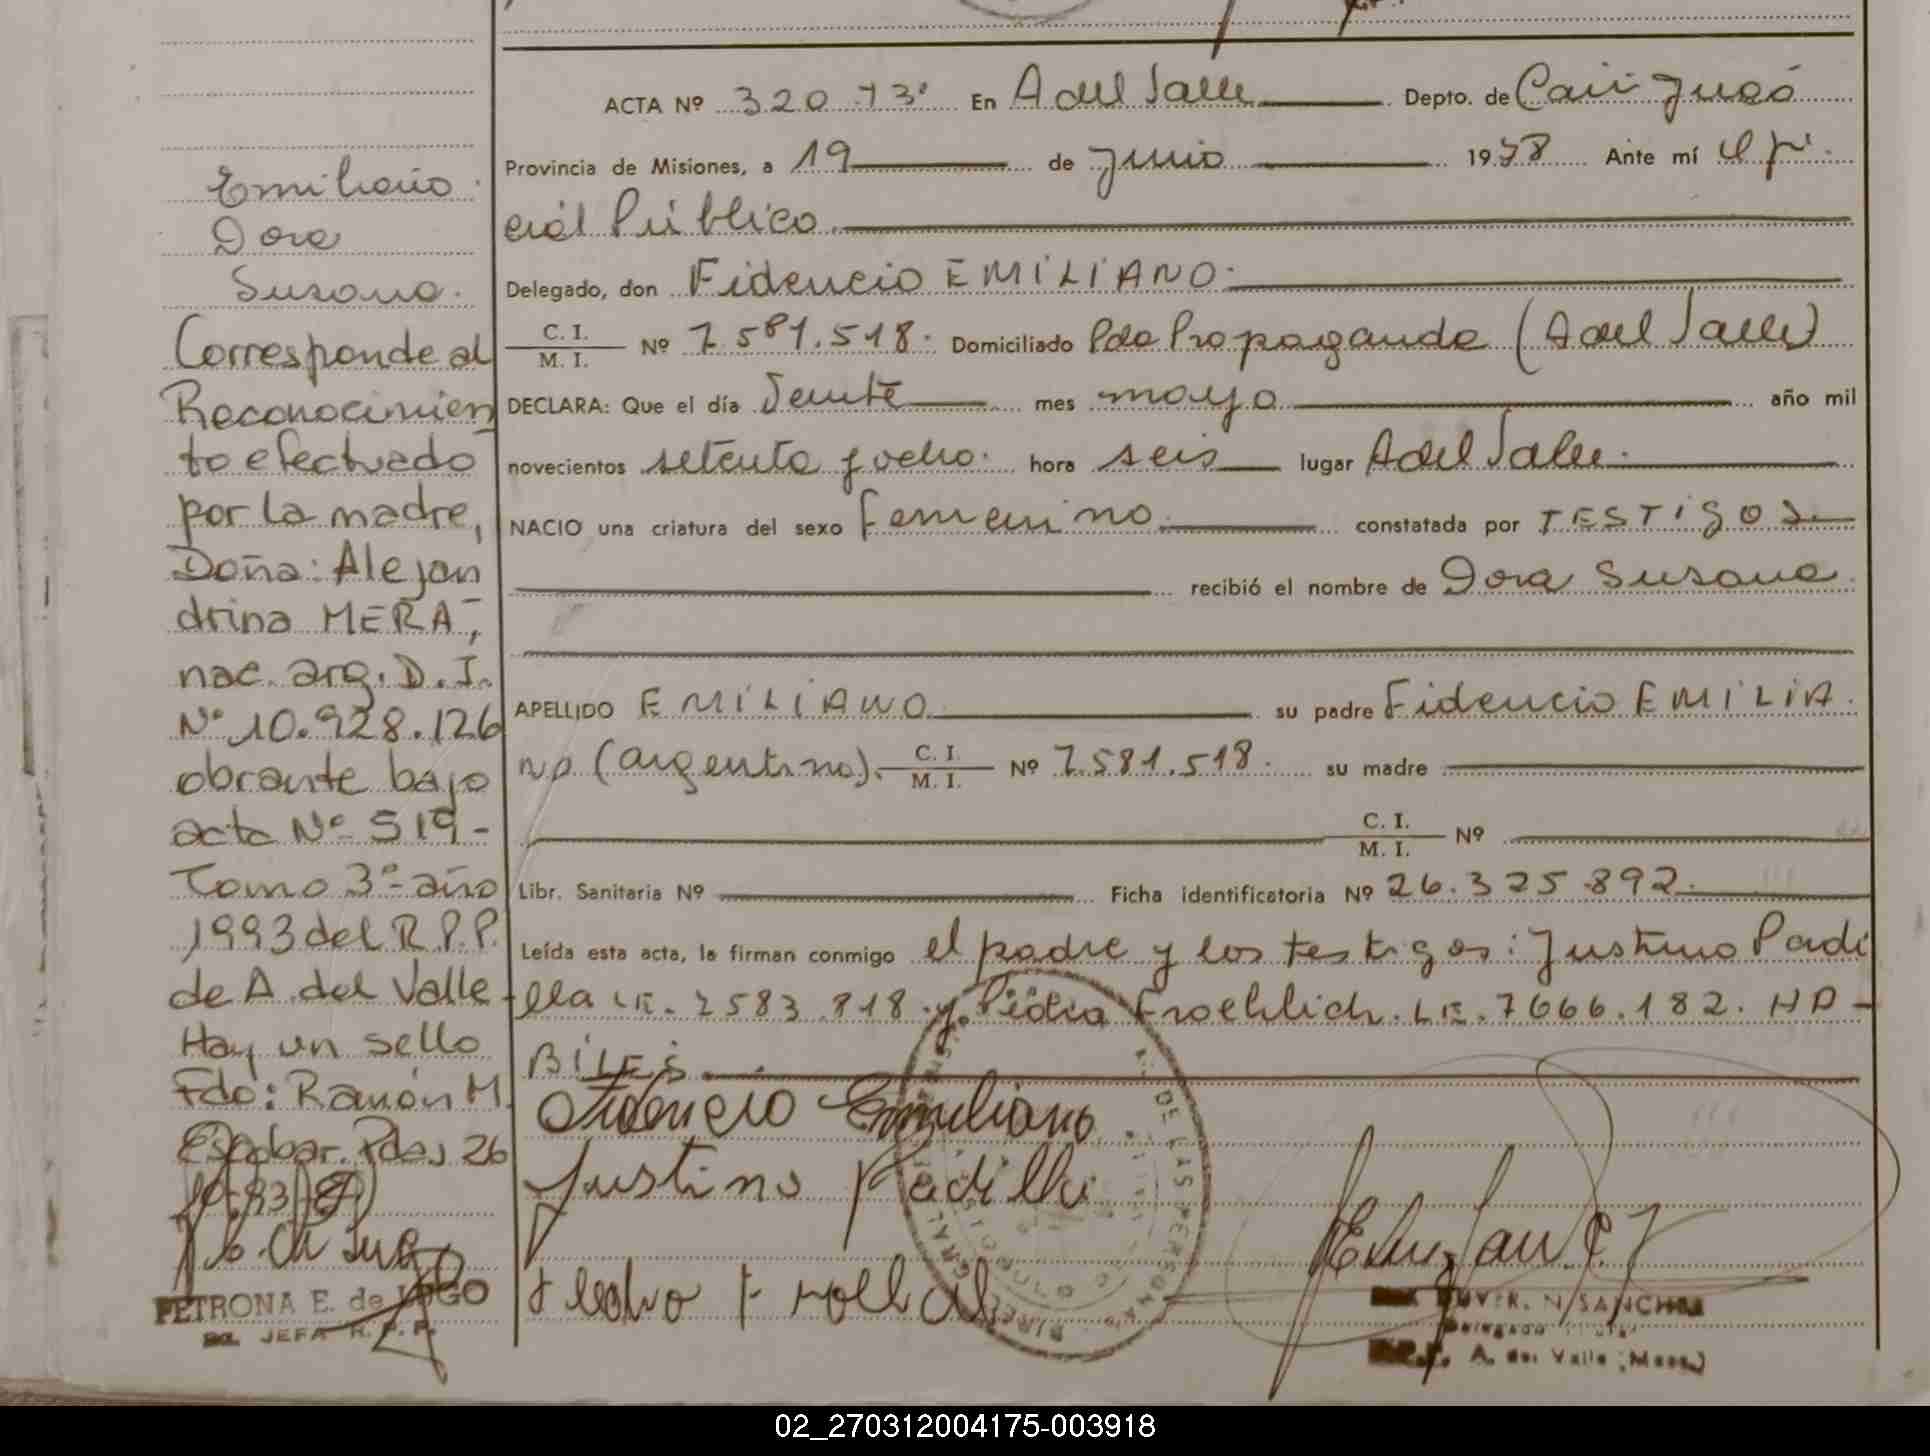 Emiliano
Dora
Susana.
Corresponde al
Reconocimien
to efectuado
por la madre,
Doña: Alejan
drina MERA,
nac. arg. D. I.
Nº 10.928.126
obrante bajo
acta Nº 519-
Tomo 3º año
1993 del R.P.P.
de A. del Valle
Hay un sello
Fdo: Ramón M.
Escobar. Pdas 26
10-93
PETRONA E. de LUGO
JEFA R. P. P.
ACTA Nº 320 Tº 3º En A del Valle Depto. de Cain-guás
Provincia de Misiones, a 19 de Junio 1978 Ante mí Ofi
cial Público
Delegado, don Fidencio EMILIANO
C. I. / M. I. Nº 7.581.518. Domiciliado Pdo Propaganda (A del Valle)
DECLARA: Que el día Veinte mes mayo año mil
novecientos setenta y ocho. hora seis lugar A del Valle.
NACIO una criatura del sexo Femenino constatada por TESTIGOS
recibió el nombre de Dora Susana
APELLIDO EMILIANO su padre Fidencio EMILIA
no (argentino). C. I. / M. I. Nº 7.581.518. su madre
C. I. / M. I. Nº
Libr. Sanitaria Nº Ficha identificatoria Nº 26.325.892.
Leída esta acta, la firman conmigo el padre y los testigos: Justino Padi
lla LE. 7583.818 y Froehlich. LE. 7666.182. HA-
BILES
Fidencio Emiliano
Justino Padilla
Pedro Frolich
DE LAS PERSONAS
N. SANCHEZ
A. del Valle (Mnes.)
02_270312004175-003918